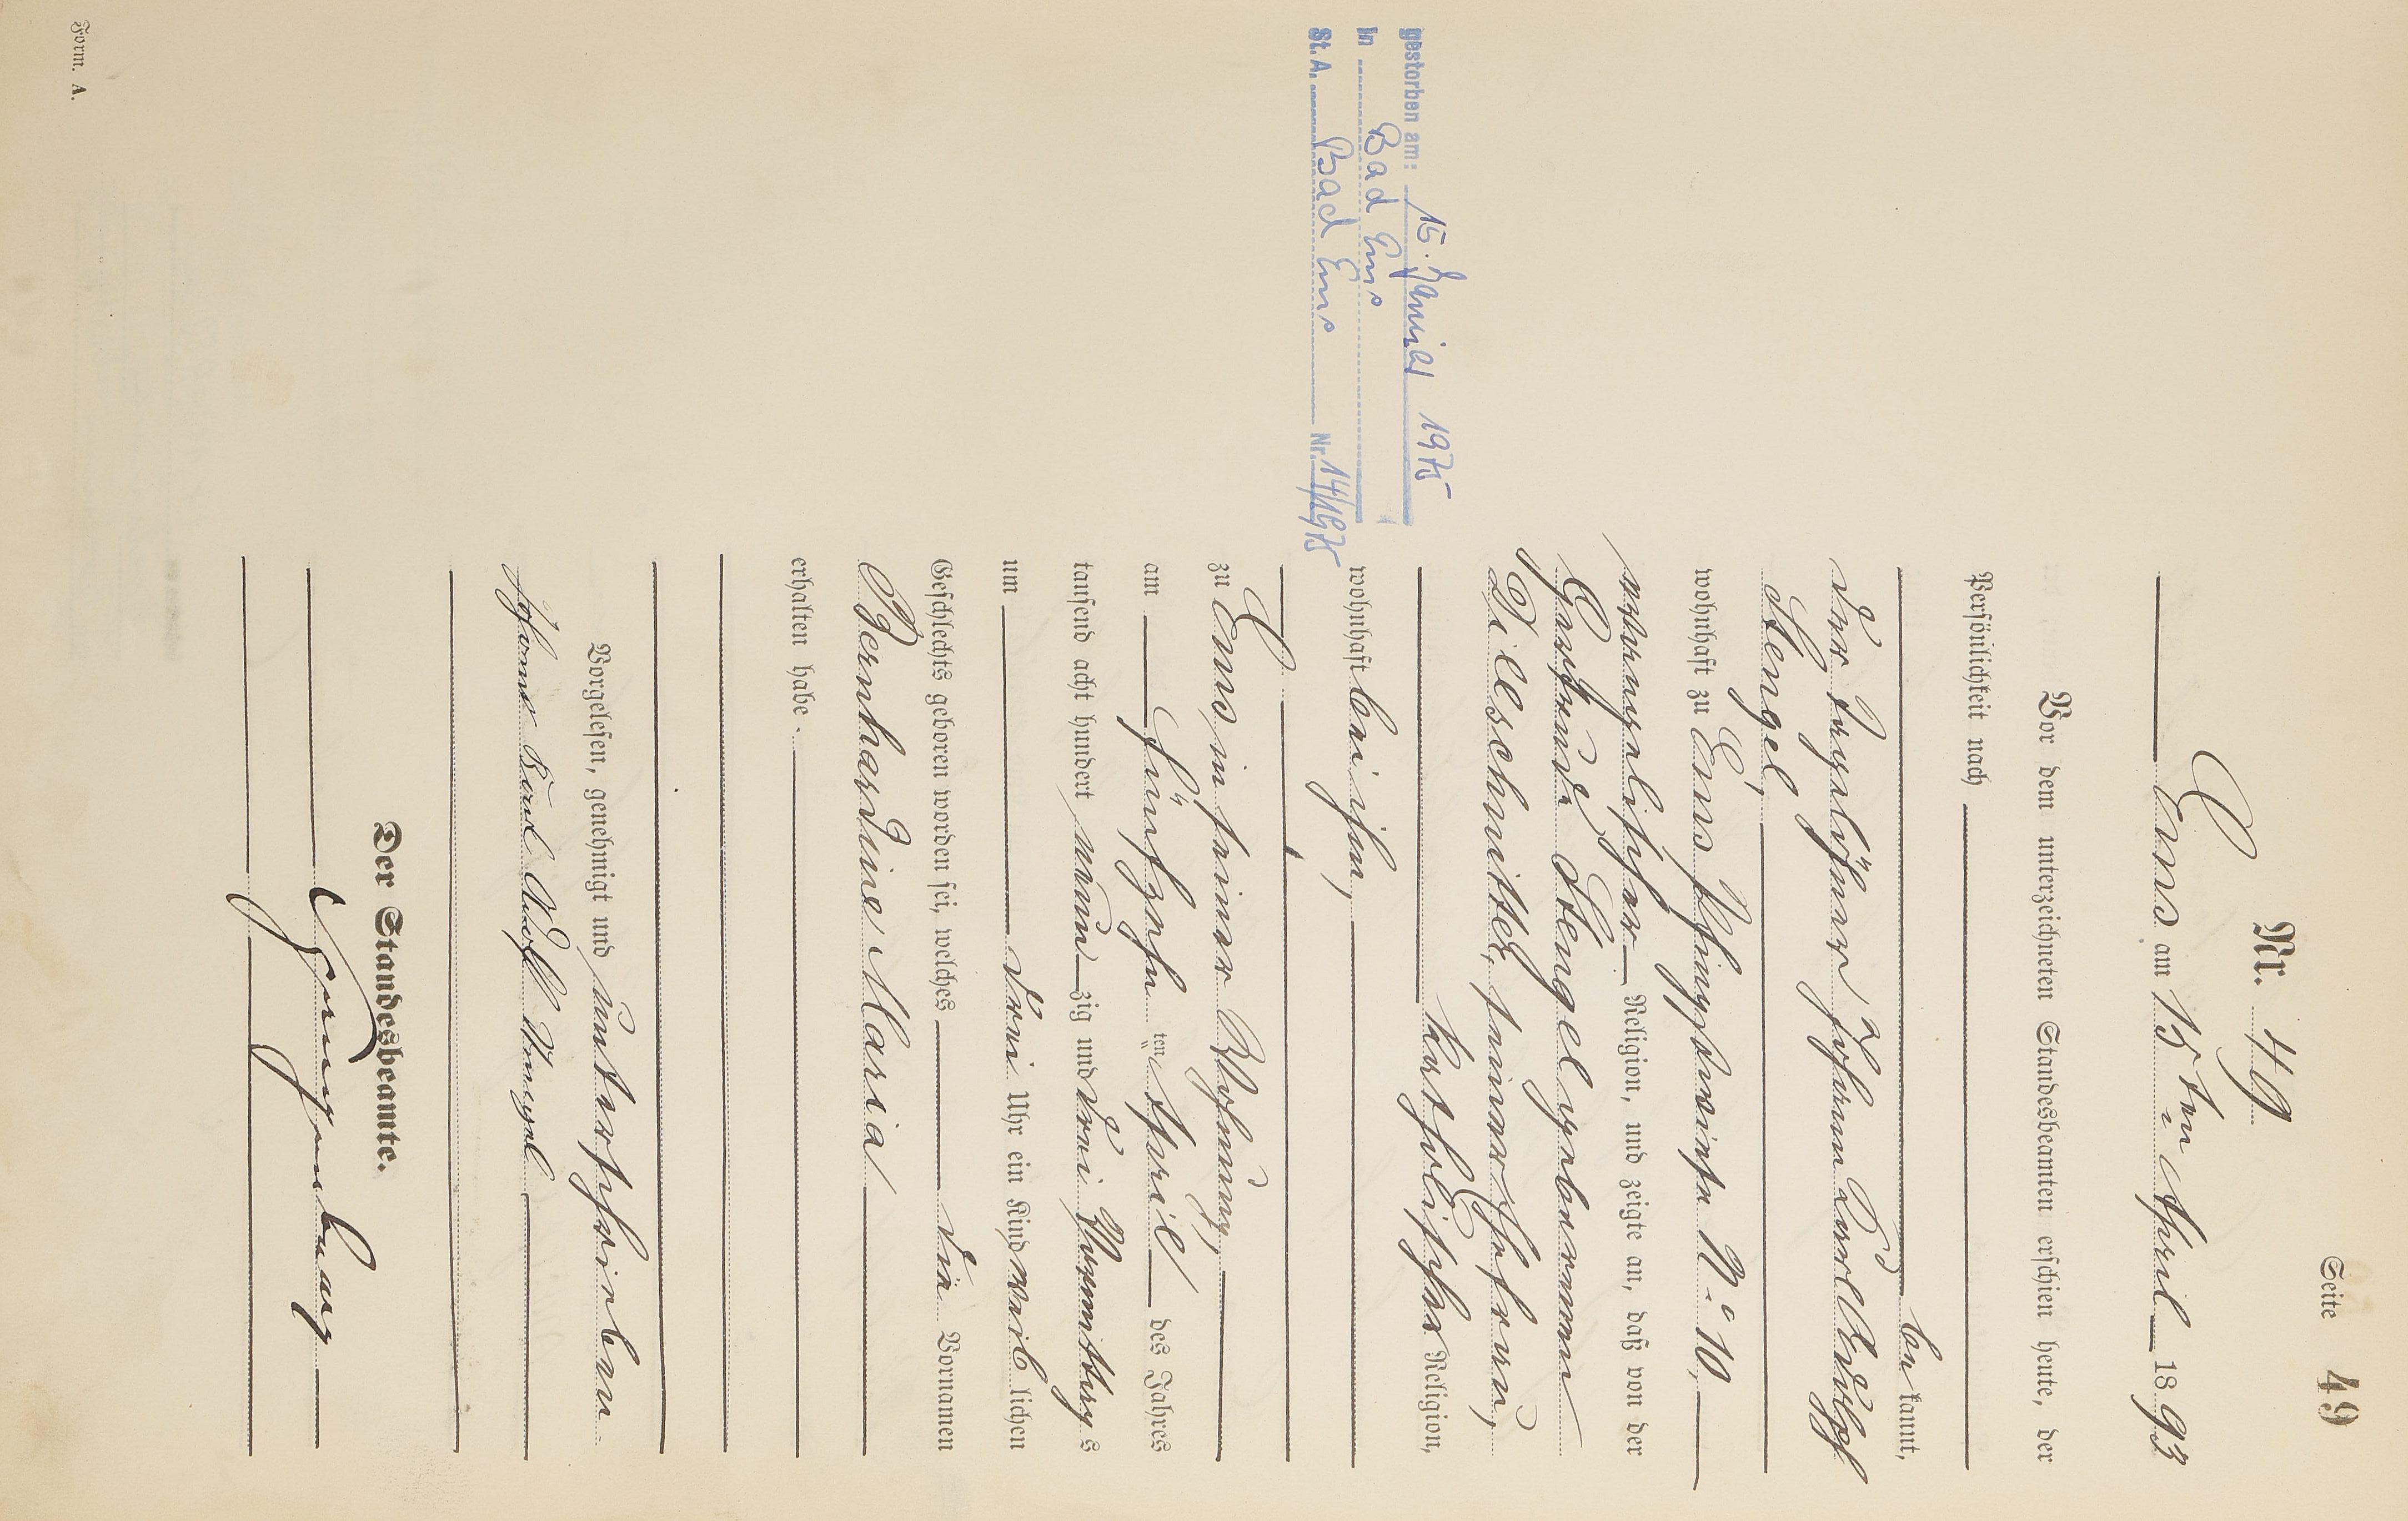 Seite 49
Nr. 49
Ems am 15ten April 1893
Vor dem unterzeichneten Standesbeamten erschien heute, der
Persönlichkeit nach
bekannt,
der Tagelöhner Johann Carl Rudolf
Stengel,
wohnhaft zu Ems Pfingstwiese No 10,
evangelischer Religion, und zeigte an, daß von der
Gertrude Stengel geborenen
Dilschnitter, seiner Ehefrau,
katholischer Religion,
wohnhaft bei ihm,
zu Ems in seiner Wohnung,
am Fünfzehnten April des Jahres
tausend acht hundert neunzig und drei Vormittags
um drei Uhr ein Kind weiblichen
Geschlechts geboren worden sei, welches die Vornamen
Bernhardine Maria
erhalten habe.
Vorgelesen, genehmigt und unterschrieben
Johann Karl Stengel
Der Standesbeamte.
gestorben am: 15. Januar 1975
in Bad Ems
St. A. Bad Ems Nr. 14/1975
Form. A.